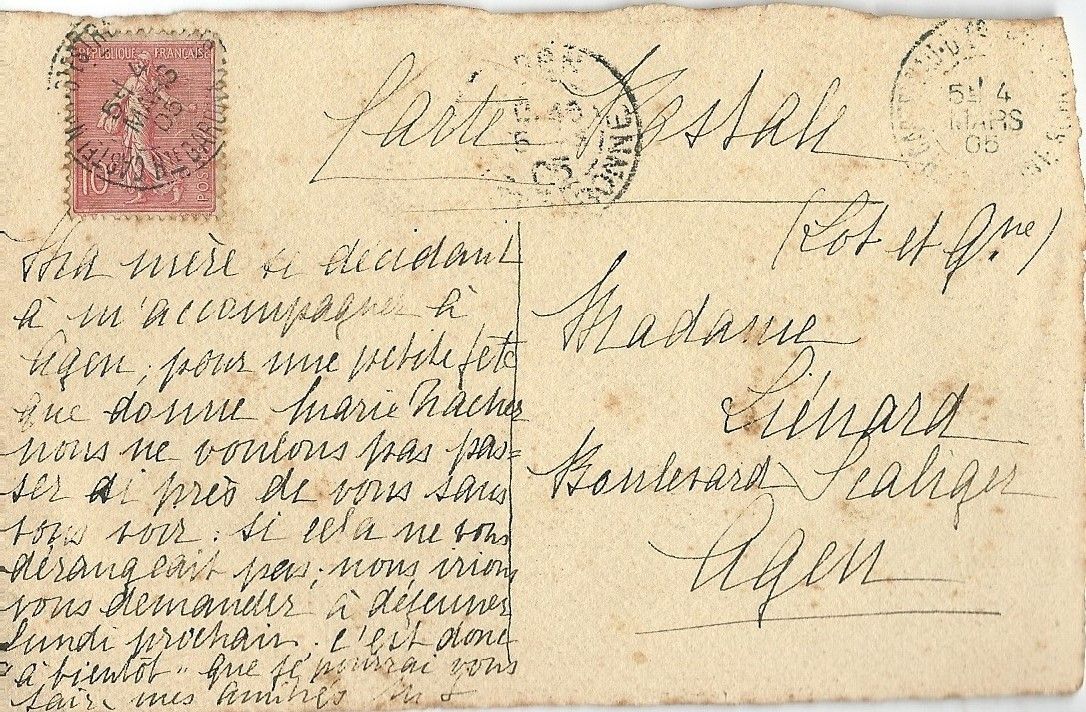 RÉPUBLIQUE FRANÇAISE
10
POSTES
5E 4
MARS
05
5E 4
MARS
05
Carte Postale
(Lot et Gne)
Madame
Liénard
Boulevard Scaliger
Agen
Ma mère se décidant
à m'accompagner à
Agen, pour une petite fête
que donne Marie
nous ne voulons pas pas=
ser si près de vous sans
vous voir : si cela ne vous
dérangeait pas, nous irions
vous demander à déjeuner
lundi prochain. c'est donc
"à bientôt" que je pourrai vous
faire mes amitiés